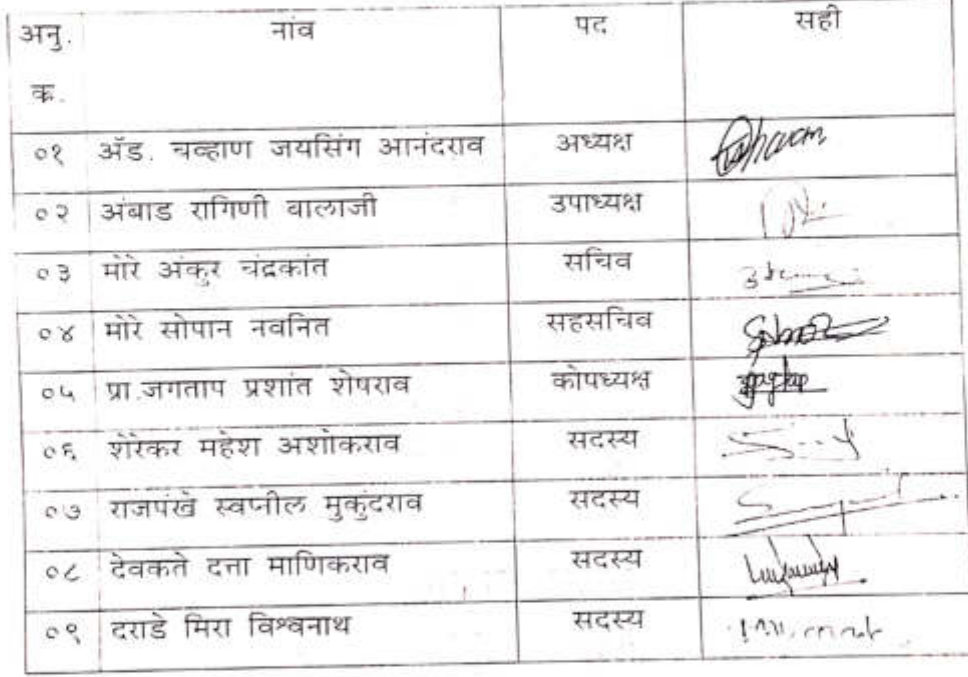 अनु. नांव पद सही
क्र.
०१ ॲड. चव्हाण जयसिंग आनंदराव अध्यक्ष
०२ अंबाड रागिणी बालाजी उपाध्यक्ष
०३ मोरे अंकुर चंद्रकांत सचिव
०४ मोरे सोपान नवनित सहसचिव
०५ प्रा.जगताप प्रशांत शेषराव कोषध्यक्ष
०६ शेरेकर महेश अशोकराव सदस्य
०७ राजपंखे स्वप्नील मुकुंदराव सदस्य
०८ देवकते दत्ता माणिकराव सदस्य
०९ दराडे मिरा विश्वनाथ सदस्य